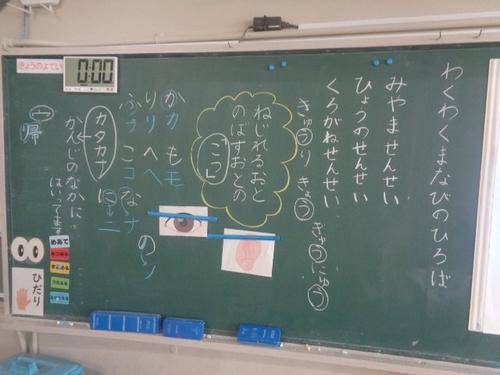 わくわくまなびのひろば
みやませんせい
ひょうのせんせい
くろがねせんせい
きゅうり きょう ぎゅうにゅう
ねじれるおと
のばすおとの
「こつ」
かカ もモ
りリ へヘ
ふフ こコ なナ のノ
にニ
カタカナ
かんじのなかに
はいってます
帰
きょうのよてい
0:00
めあて
ひだり